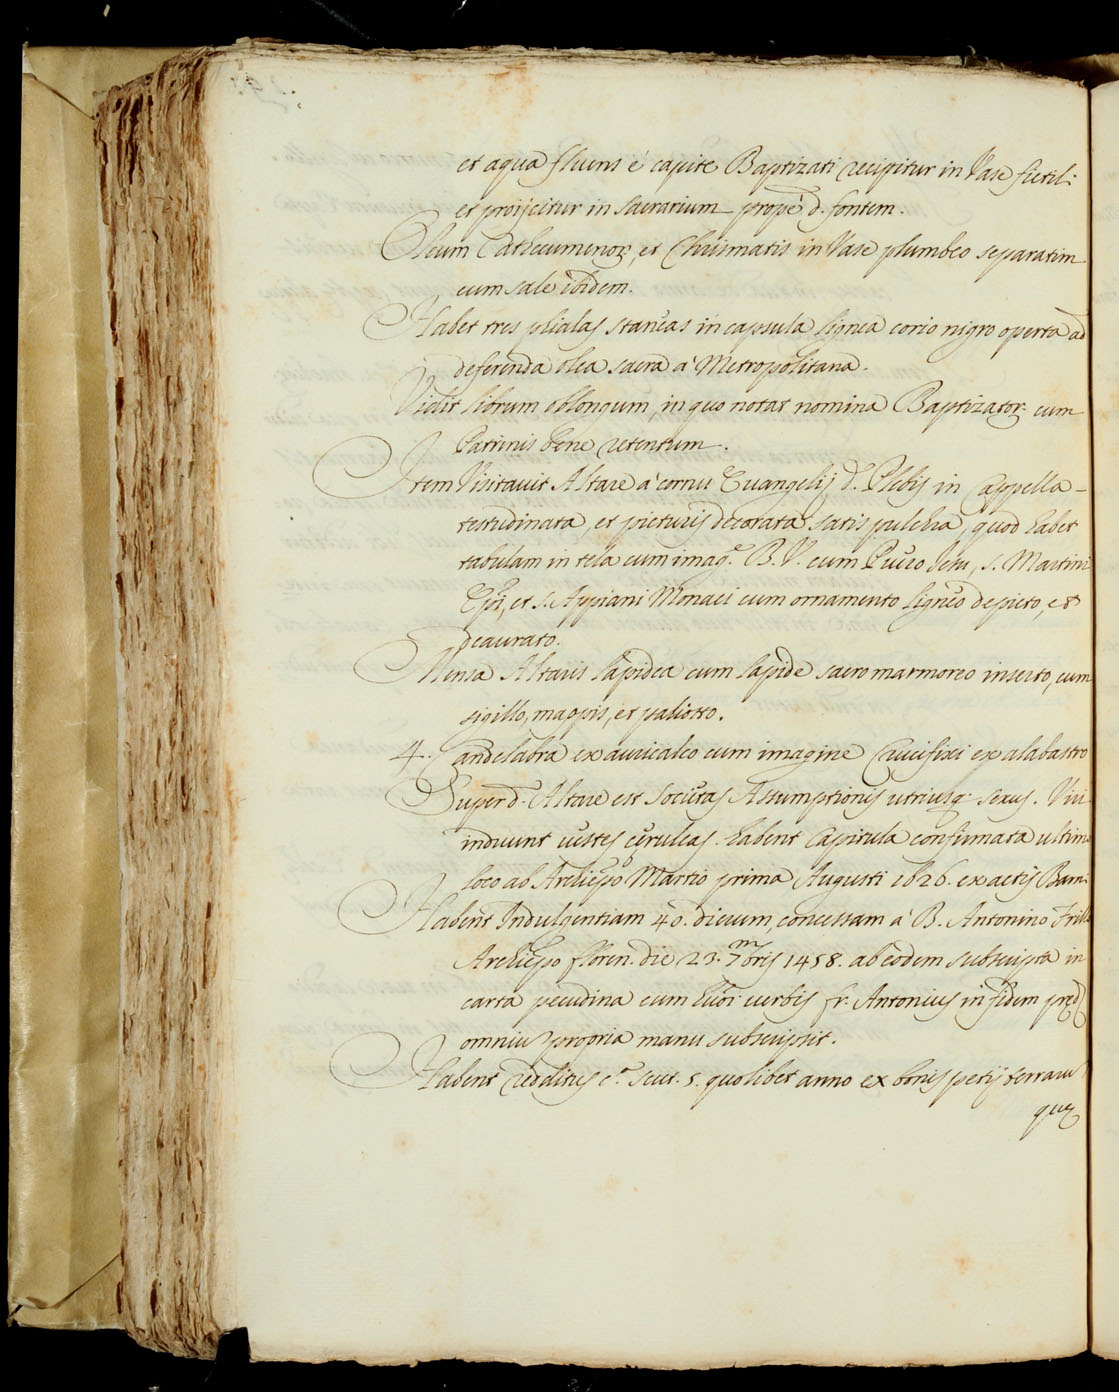 et aqua fluens è capite Baptizati recipitur in Vase fictili
et proijcitur in Sacrarium propè d. fontem.
Oleum Cathecumenor, et Chrismatis in Vase plumbeo separatim
cum sale ibidem.
Habet tres phialas stancas in capsula lignea corio nigro operta ad
deferenda olea sacra à Metropolitana.
Vidit librum oblongum, in quo notat nomina Baptizator cum
Patrinis bene retentum.
Item Visitavit Altare à cornu Evangelij d. Plebis in Cappella
testudinata, et picturis decorata satis pulchra, quod habet
tabulam in tela cum imag.e B. V. cum Puero Jesu, S. Martini
Epi, et S. Appiani Monaci cum ornamento ligneo depicto, et
deaurato.
Mensa Altaris lapidea cum lapide sacro marmoreo inserto, cum
sigillo, mappis, et paliotto.
4. Candelabra ex auricalco cum imagine Crucifixi ex alabastro
Super d. Altare est Societas Assumptionis utriusq. sexus. Viri
induunt vestes ceruleas. habent Capitula confirmata ultimo
loco ab Archiepo Martio prima Augusti 1626. ex actis Bam.
Habent Indulgentiam 40. dierum, concessam à B. Antonino
Archiepo floren. die 23. 7mbris 1458. ab eodem subscripta in
carta pecudina cum his verbis fr. Antonius in fidem pred
omniu propria manu subscripsit.
Habent redditus c.a scut. 5. quolibet anno ex bonis petij terrarum
que